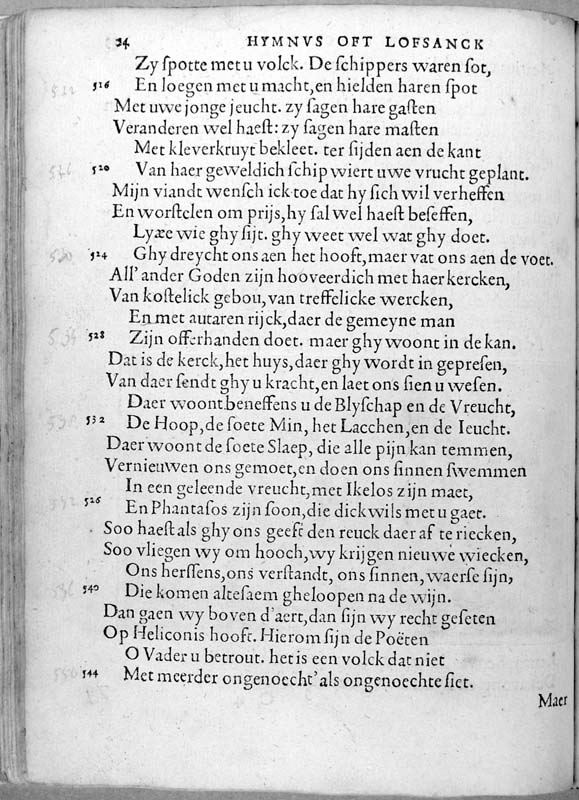 24 HYMNVS OFT LOFSANCK
Zy ſpotte met u volck. De ſchippers waren ſot,
516 En loegen met u macht, en hielden haren ſpot
Met uwe jonge jeucht. zy ſagen hare gaſten
Veranderen wel haeſt: zy ſagen hare maſten
Met kleverkruyt bekleet. ter ſijden aen de kant
520 Van haer geweldich ſchip wiert uwe vrucht geplant.
Mijn viandt wenſch ick toe dat hy ſich wil verheffen
En worſtelen om prijs, hy ſal wel haeſt beſeffen,
Lyæe wie ghy ſijt. ghy weet wel wat ghy doet.
524 Ghy dreycht ons aen het hooft, maer vat ons aen de voet.
All' ander Goden zijn hooveerdich met haer kercken,
Van koſtelick gebou, van treffelicke wercken,
En met autaren rijck, daer de gemeyne man
528 Zijn offerhanden doet. maer ghy woont in de kan.
Dat is de kerck, het huys, daer ghy wordt in gepreſen,
Van daer ſendt ghy u kracht, en laet ons ſien u weſen.
Daer woont beneffens u de Blyſchap en de Vreucht,
532 De Hoop, de ſoete Min, het Lacchen, en de Ieucht.
Daer woont de ſoete Slaep, die alle pijn kan temmen,
Vernieuwen ons gemoet, en doen ons ſinnen ſwemmen
In een geleende vreucht, met Ikelos zijn maet,
526 En Phantaſos zijn ſoon, die dickwils met u gaet.
Soo haeſt als ghy ons geeft den reuck daer af te riecken,
Soo vliegen wy om hooch, wy krijgen nieuwe wiecken,
Ons herſſens, ons verſtandt, ons ſinnen, waerſe ſijn,
540 Die komen alteſaem gheloopen na de wijn.
Dan gaen wy boven d'aert, dan ſijn wy recht geſeten
Op Heliconis hooft. Hierom ſijn de Poëten
O Vader u betrout. het is een volck dat niet
544 Met meerder ongenoecht' als ongenoechte ſiet.
Maer